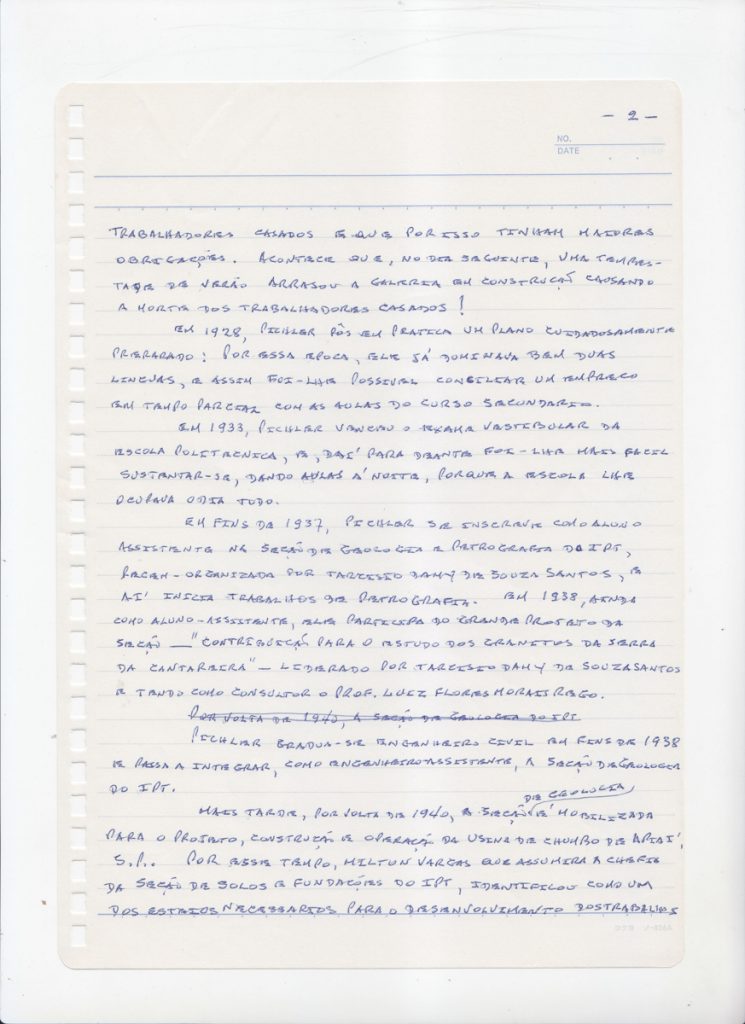 - 2 -
NO.
DATE
TRABALHADORES CASADOS E QUE POR ISSO TINHAM MAIORES
OBRIGAÇÕES. ACONTECE QUE, NO DIA SEGUINTE, UMA TEMPES-
TADE DE VERÃO ARRASOU A GALERIA EM CONSTRUÇÃ CAUSANDO
A MORTE DOS TRABALHADORES CASADOS!
EM 1928, PICHLER PÔS EM PRATICA UM PLANO CUIDADOSAMENTE
PREPARADO: POR ESSA EPOCA, ELE JÁ DOMINAVA BEM DUAS
LINGUAS, E ASSIM FOI-LHE POSSIVEL CONCILIAR UM EMPREGO
EM TEMPO PARCIAL COM AS AULAS DO CURSO SECUNDARIO.
EM 1933, PICHLER VENCEU O EXAME VESTIBULAR DA
ESCOLA POLITECNICA, E, DAÍ PARA DEANTE FOI-LHE MAIS FACIL
SUSTENTAR-SE, DANDO AULAS Á NOITE, PORQUE A ESCOLA LHE
OCUPAVA O DIA TODO.
EM FINS DE 1937, PICHLER SE INSCREVE COMO ALUNO
ASSISTENTE NA SEÇÃO DE GEOLOGIA E PETROGRAFIA DO IPT,
RECEM-ORGANIZADA POR TARCISIO DAMY DE SOUZA SANTOS, E
AÍ INICIA TRABALHOS DE PETROGRAFIA. EM 1938, AINDA
COMO ALUNO-ASSITENTE, ELE PARTICIPA DO GRANDE PROJETO DA
SEÇÃO — "CONTRIBUIÇÃ PARA O ESTUDO DOS GRANITOS DA SERRA
DA CANTAREIRA" — LIDERADO POR TARCISIO DAMY DE SOUZA SANTOS
E TENDO COMO CONSULTOR O PROF. LUIZ FLORES MORAIS REGO.
POR VOLTA DE 1940, A SEÇÃO DE GEOLOGIA DO IPT
PICHLER GRADUA-SE ENGENHEIRO CIVIL EM FINS DE 1938
E PASSA A INTEGRAR, COMO ENGENHEIRO ASSISTENTE, A SEÇÃO DE GEOLOGIA
DO IPT.
DE GEOLOGIA
MAIS TARDE, POR VOLTA DE 1940, A SEÇÃO É MOBILIZADA
PARA O PROJETO, CONSTRUÇÃ E OPERAÇÃ DA USINA DE CHUMBO DE APIAÍ,
S.P.. POR ESSE TEMPO, MILTON VARGAS QUE ASSUMIRA A CHEFIA
DA SEÇÃO DE SOLOS E FUNDAÇÕES DO IPT, IDENTIFICOU COMO UM
DOS ESTEIOS NECESSARIOS PARA O DESENVOLVIMENTO DOS TRABALHOS